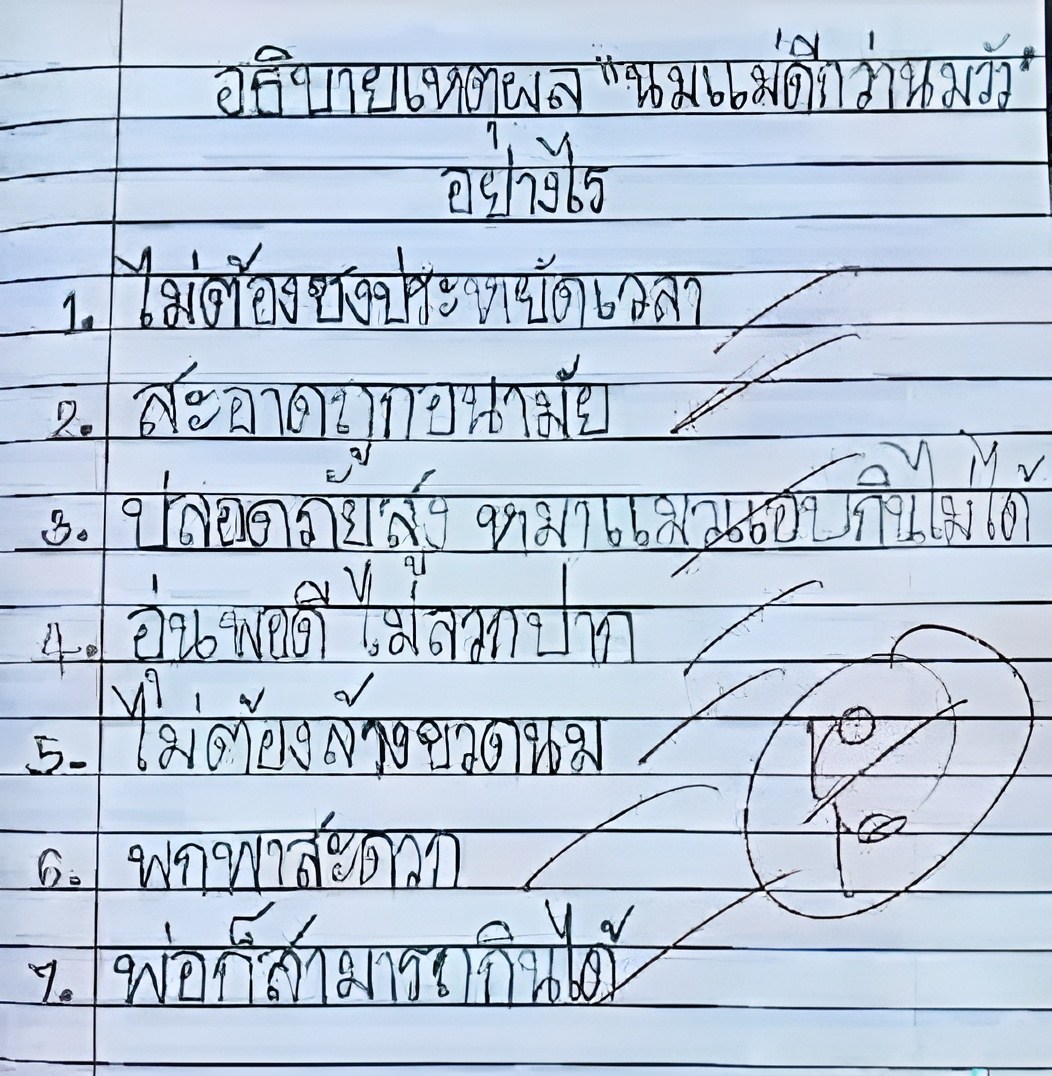 อธิบายเหตุผล "นมแม่ดีกว่านมวัว"
อย่างไร
1. ไม่ต้องชงประหยัดเวลา
2. สะอาดถูกอนามัย
3. ปลอดภัยสูง หมาแมวแอบกินไม่ได้
4. อุ่นพอดี ไม่ลวกปาก
5- ไม่ต้องล้างขวดนม
6. พกพาสะดวก
7. พ่อก็สามารถกินได้